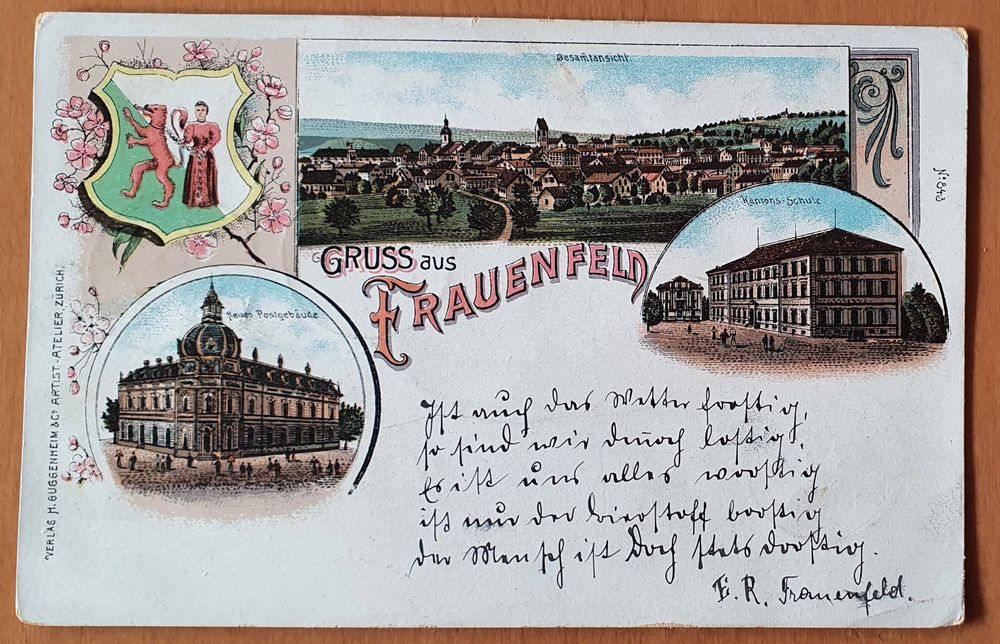 Gesamtansicht.
No. 843
Kantons-Schule
GRUSS aus
FRAUENFELD
Neues Postgebäude.
VERLAG H. GUGGENHEIM & Co. ARTIST.-ATELIER, ZÜRICH.
Ist auch das Wetter frostig,
so sind wir dennoch lostig,
Es ist uns alles worstig
ist nur der Bierstoff borstig
der Mensch ist Doch stets dorstig.
E. R. Frauenfeld.